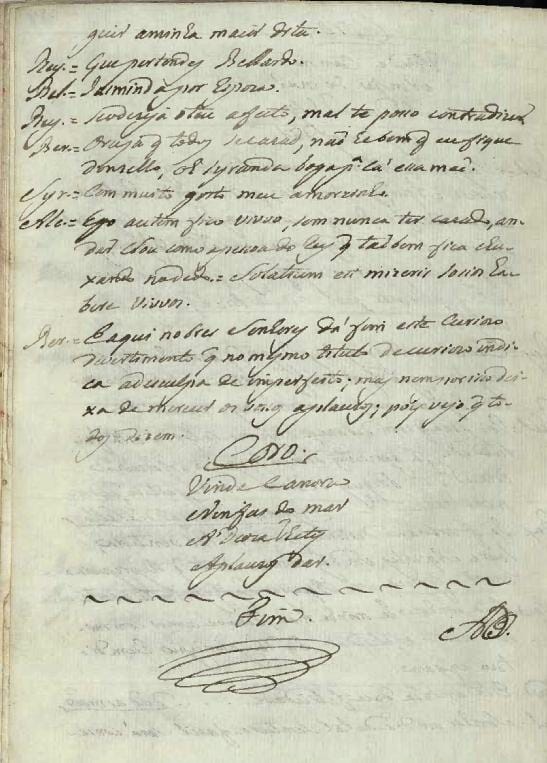 guir a minha maior dita.
Rey.= Que pertendes Bellardo.
Bel.= Jasminda por Espoza.
Rey.= Se o dezeja o teu afecto, mal te poso contradizer
Ber.= Ora já q̃ todos se cazaõ, naõ he bem q̃ eu fique
donzello, Sr.ª Syranda boga p.ª cá essa maõ.
Syr.= Com muito gosto meu amorzinho.
Ale.= Ego autem fico viuvo, sem nunca ter cazado, an-
dar. Sou como a pessoa do Rey q̃ taõbem fica chu-
xando no dedo.= Solatium est mizeris socios ha-
bere viuvos.
Ber.= E aqui nobres Senhores dá fim este Curiozo
divertimento q̃ no mesmo titulo de curiozo indi-
ca a desculpa de imperfeito; mas nem por isso dei-
xa de merecer os vosos aplauzos; pois vejo q̃ to-
dos dizem.
Coro.
Vinde Canoras
Ninfas do mar
A Deoza Thetis
Aplauzos dar.
Fim.